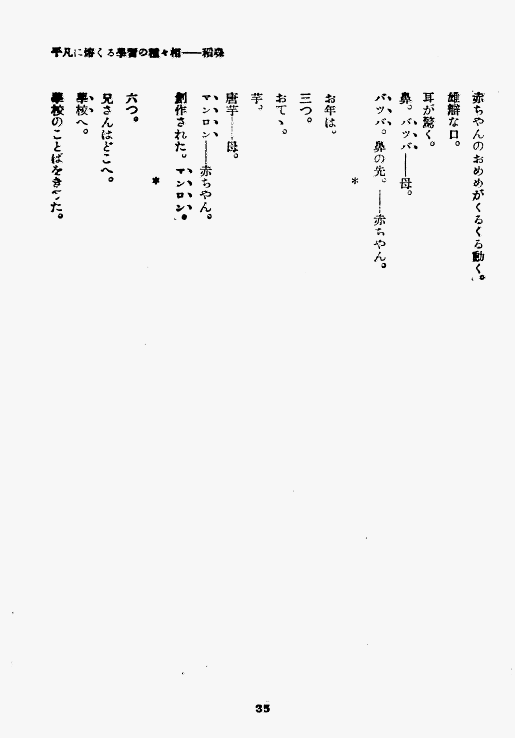 平凡に熔くる學習の種々相——稲森
赤ちやんのおめめがくるくる動く。
雄辯な口。
耳が驚く。
鼻。バッバ——母。
バッバ。鼻の先。——赤ちやん。
＊
お年は。
三つ。
おてゝ。
芋。
唐芋……母。
マンロン——赤ちやん。
創作された。マンロン。
＊
六つ。
兄さんはどこへ。
學校へ。
學校のことばをきいた。
35